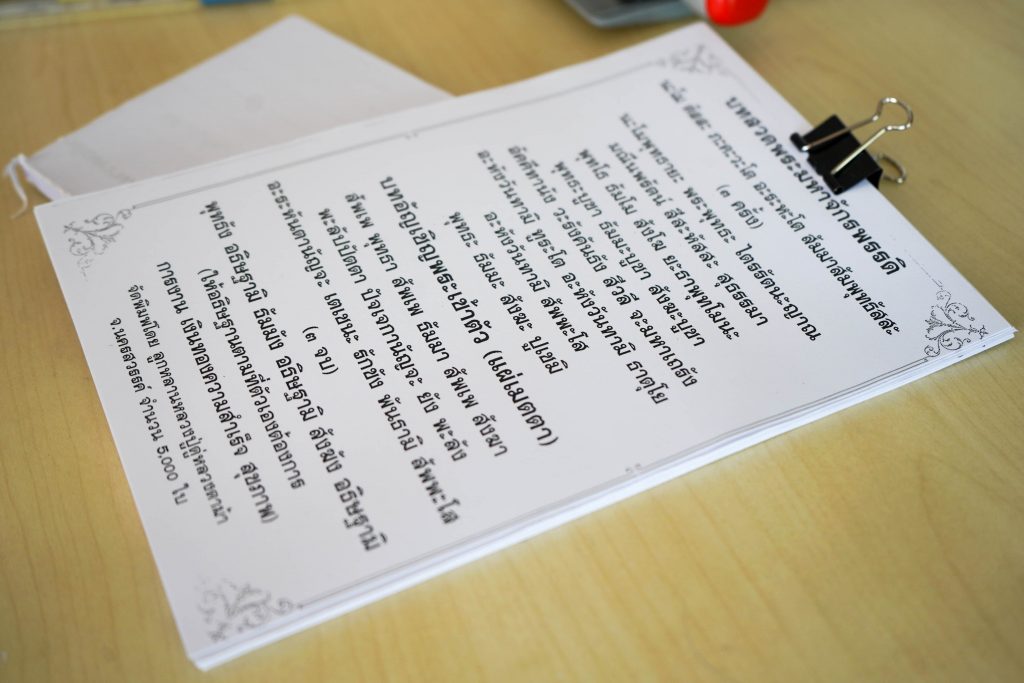 บทสวดพระมหาจักรพรรดิ
นะโม ตัสสะ ภะคะวะโต อะระหะโต สัมมาสัมพุทธัสสะ
(๓ ครั้ง)
นะโมพุทธายะ พระพุทธะ ไตรรัตนะญาณ
มณีนพรัตน์ สีสะหัสสะ สุธรรมา
พุทโธ ธัมโม สังโฆ ยะธาพุทโมนะ
พุทธะบูชา ธัมมะบูชา สังฆะบูชา
อัคคีทานัง วะรังคันธัง สีวลี จะมหาเถรัง
อะหังวันทามิ ทูระโต อะหังวันทามิ ธาตุโย
อะหังวันทามิ สัพพะโส
พุทธะ ธัมมะ สังฆะ ปูเชมิ
บทอัญเชิญพระเข้าตัว (แผ่เมตตา)
สัพเพ พุทธา สัพเพ ธัมมา สัพเพ สังฆา
พะลัปปัตตา ปัจเจกานัญจะ ยัง พะลัง
อะระหันตานัญจะ เตเชนะ รักขัง พันธามิ สัพพะโส
(๓ จบ)
พุทธัง อธิษฐามิ ธัมมัง อธิษฐามิ สังฆัง อธิษฐามิ
(ให้อธิษฐานตามที่ตัวเองต้องการ
การงาน เงินทองความสำเร็จ สุขภาพ)
จัดพิมพ์โดย ลูกหลานหลวงปู่ดู่หลวงตาม้า
จ.นครสวรรค์ จำนวน 5,000 ใบ